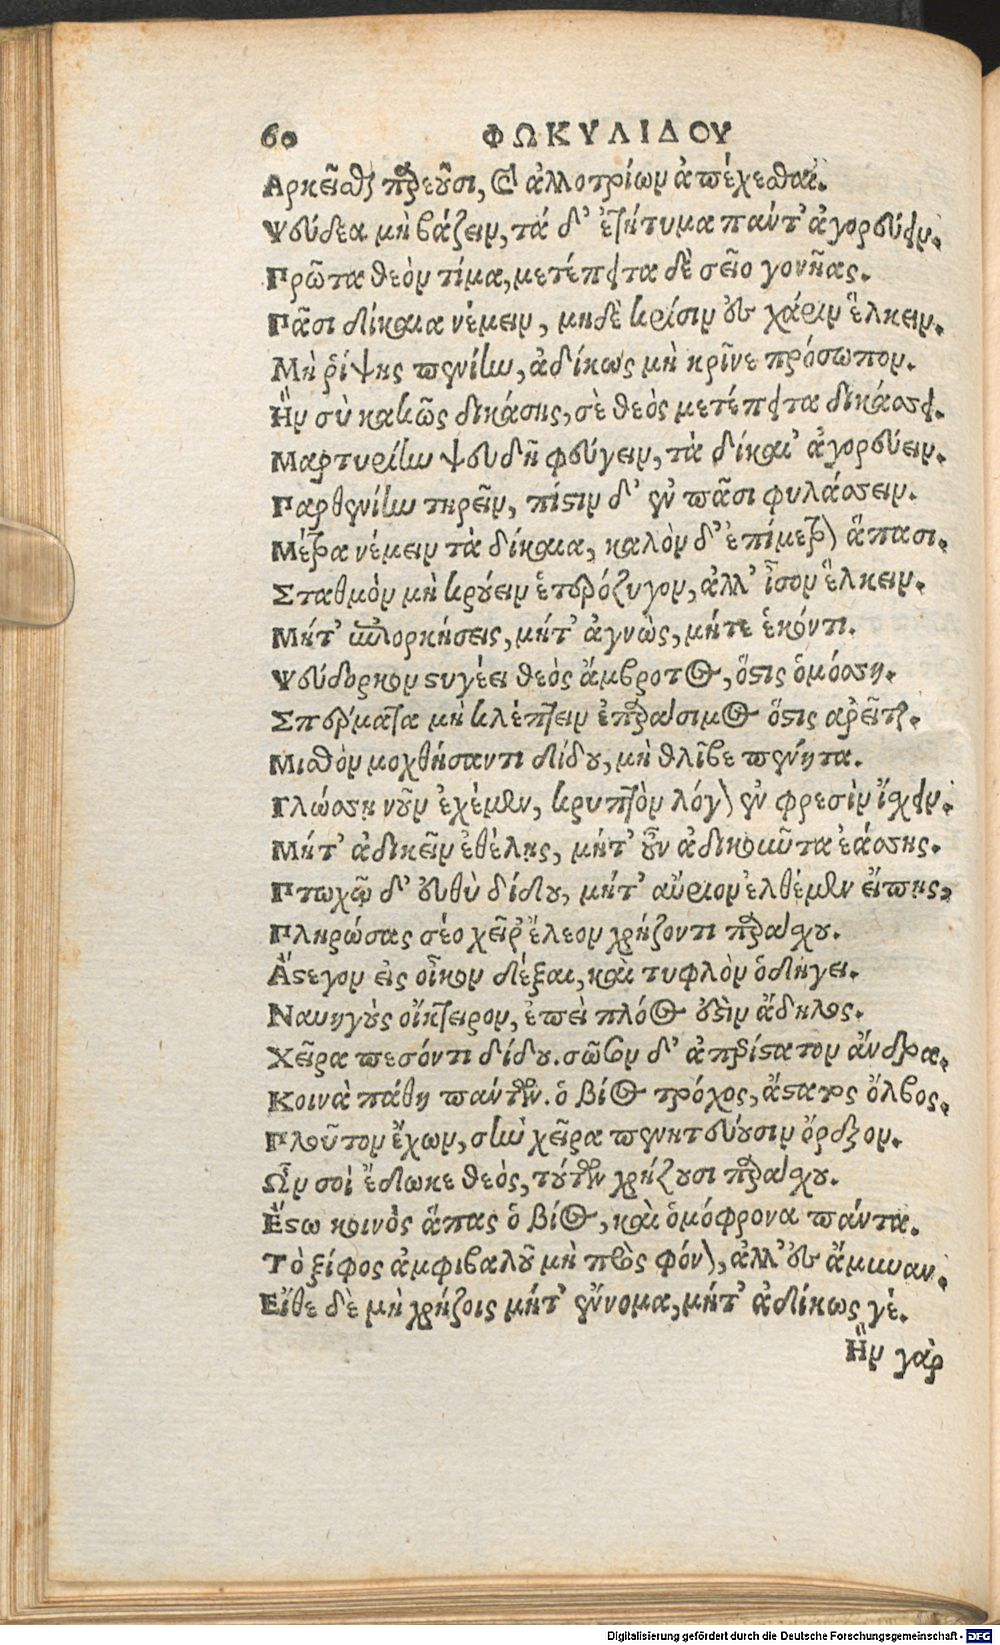 60 ΦΩΚΥΛΙΔΟΥ
Αρκεῖσθαι παρεοῦσι, καὶ ἀλλοτρίων ἀπέχεσθαι.
Ψεύδεα μὴ βάζειν, τά δ' ἐτήτυμα παντ' ἀγορεύειν.
Πρῶτα θεὸν τίμα, μετέπειτα δὲ σεῖο γονῆας.
Πᾶσι δίκαια νέμειν, μηδὲ κρίσιν ἐς χάριν ἕλκειν.
Μὴ ῥίψης πενίην, ἀδίκως μὴ κρῖνε πρόσωπον.
Ἢν σὺ κακῶς δικάσης, σὲ θεὸς μετέπειτα δικάσσει.
Μαρτυρίην ψευδῆ φεύγειν, τὰ δίκαι' ἀγορεύειν.
Παρθενίην τηρεῖν, πίστιν δ' ἐν πᾶσι φυλάσσειν.
Μέτρα νέμειν τὰ δίκαια, καλὸν δ' ἐπίμετρον ἅπασι.
Σταθμὸν μὴ κρούειν ἑτερόζυγον, ἀλλ' ἶσον ἕλκειν.
Μήτ' ἐπιορκήσεις, μήτ' ἀγνὼς, μήτε ἑκόντι.
Ψεύδορκον στυγέει θεὸς ἄμβροτος, ὅστις ὁμόσση.
Σπέρματα μὴ κλέπτειν ἐπαράσιμος ὅστις αρεῖται.
Μισθὸν μοχθήσαντι δίδου, μὴ θλῖβε πένητα.
Γλώσση νοῦν ἐχέμεν, κρυπτὸν λόγον ἐν φρεσὶν ἴσχειν.
Μήτ' ἀδικεῖν ἐθέλης, μήτ' οὖν ἀδικοῦντα ἐάσσης.
Πτωχῷ δ' εὐθὺ δίδου, μήτ' αὔριον ἐλθέμεν εἴπης,
Πληρώσας σέο χεῖρ' ἔλεον χρήζοντι παράσχου.
Ἄστεγον εἰς οἶκον δέξαι, καὶ τυφλὸν ὁδήγει.
Ναυηγοὺς οἴκτειρον, ἐπεὶ πλόος ἐστὶν ἄδηλος.
Χεῖρα πεσόντι δίδου. σῶσον δ' ἀπερίστατον ἄνδρα.
Κοινὰ πάθη πάντων. ὁ βίος τρόχος, ἄστατος ὄλβος.
Πλοῦτον ἔχων, σὴν χεῖρα πενητεύουσιν ὄρεξον.
Ὧν σοὶ ἔδωκε θεὸς, τούτων χρήζουσι παράσχου.
Ἔστω κοινὸς ἅπας ὁ βίος, καὶ ὁμόφρονα πάντα.
Τὸ ξίφος ἀμφιβαλοῦ μὴ πρὸς φόνον, ἀλλ' ἐς ἄμυναν.
Εἴθε δὲ μὴ χρήζοις μήτ' ἔννομα, μήτ' ἀδίκως γέ.
Ἢν γὰρ
Digitalisierung gefördert durch die Deutsche Forschungsgemeinschaft - DFG